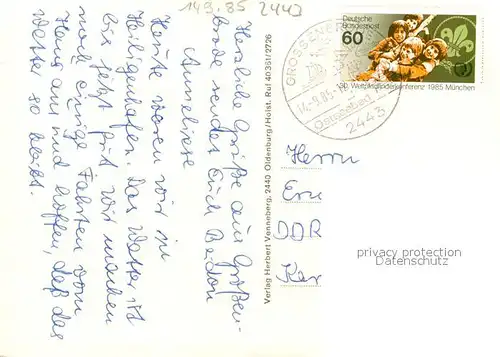 149.85 2443
Herzliche Grüße aus Großen-
brode sendet Euch Beiden
Anneliese
Heute waren wir in
Heiligenhafen. Das Wetter ist
bis jetzt gut. Wir machen
noch einige Fahrten vom
Haus aus und hoffen, daß das
Wetter so bleibt.
Verlag Herbert Venneberg, 2440 Oldenburg/Holst. Ruf 40361/2726
Deutsche
Bundespost
60
30. Weltpfadfinderkonferenz 1985 München
GROSSENBRODE
14.-9.85.-
Ostseebad
2443
Herrn
DDR
privacy protection
Datenschutz